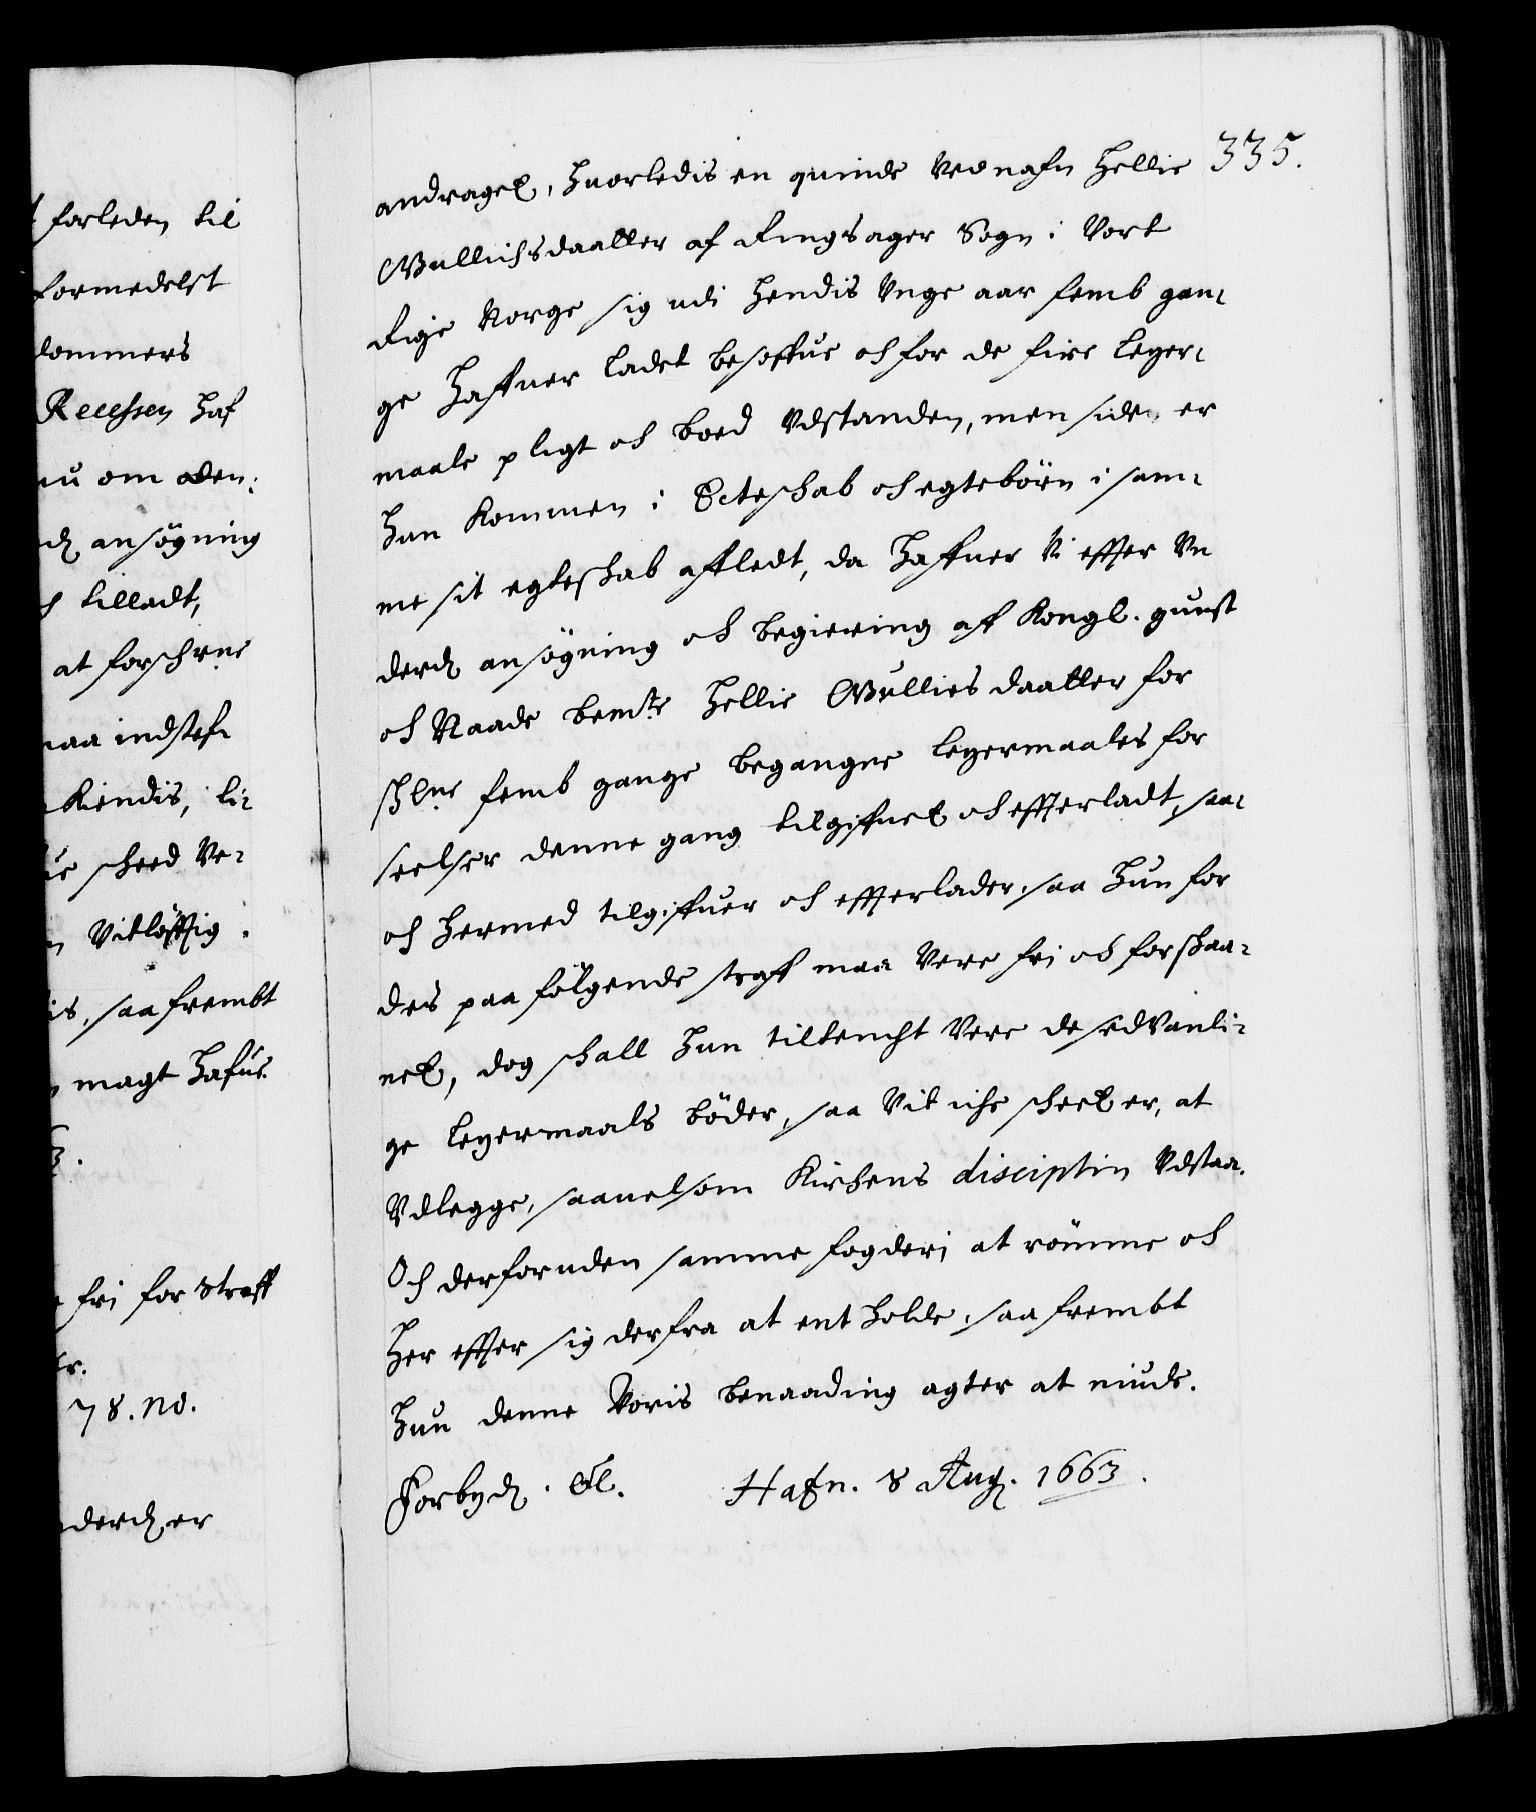 forleden til
formedelst
dommers
Recessen haf
nu om den:
dh ansøgning
h tilladt,
at forschrne
maa indstef
Kiendis, li-
scheed Ve-
Vitløfftig.
is, saafrembt
magt hafue
3.
fri for Straff
78. no.
derdh er
335.
andraget, huorledis en quinde Ved nafn Hellie
Gulliechsdaatter af Ringsager Sogn i Vort
Rige Norge sig udi hendis Unge aar femb gan-
ge haffuer ladet besoffue och for de fire leyer-
maale pligt och boed Udstanden, men siden er
hun Kommen i Ecteschab och egtebörn i sam-
me sit egteschab affledt, da haffuer Vi effter Un
derdh ansögning och begiering aff Kongl. gunst
och Naade bemte Hellie Gulliesdaatter for
schrne femb gange begangne leyermaales for
seelser denne gang tilgiffuet och effterladt, saa-
och hermed tilgiffuer och effterlader, saa hun for
des paafölgende straff maa Vere fri och forskaa-
net, dog schall hun tiltencht Vere de sedvanli-
ge leyermaals böder, saa Vit iche scheet er, at
Udlegge, saauelsom Kirchens disciplin Udstaa.
Och derforuden samme fogderi at römme och
her effter sig derfra at entholde, saafrembt
hun denne Voris benaading agter at niude.
Forbydh. Et. Hafn. 8 Aug. 1663.